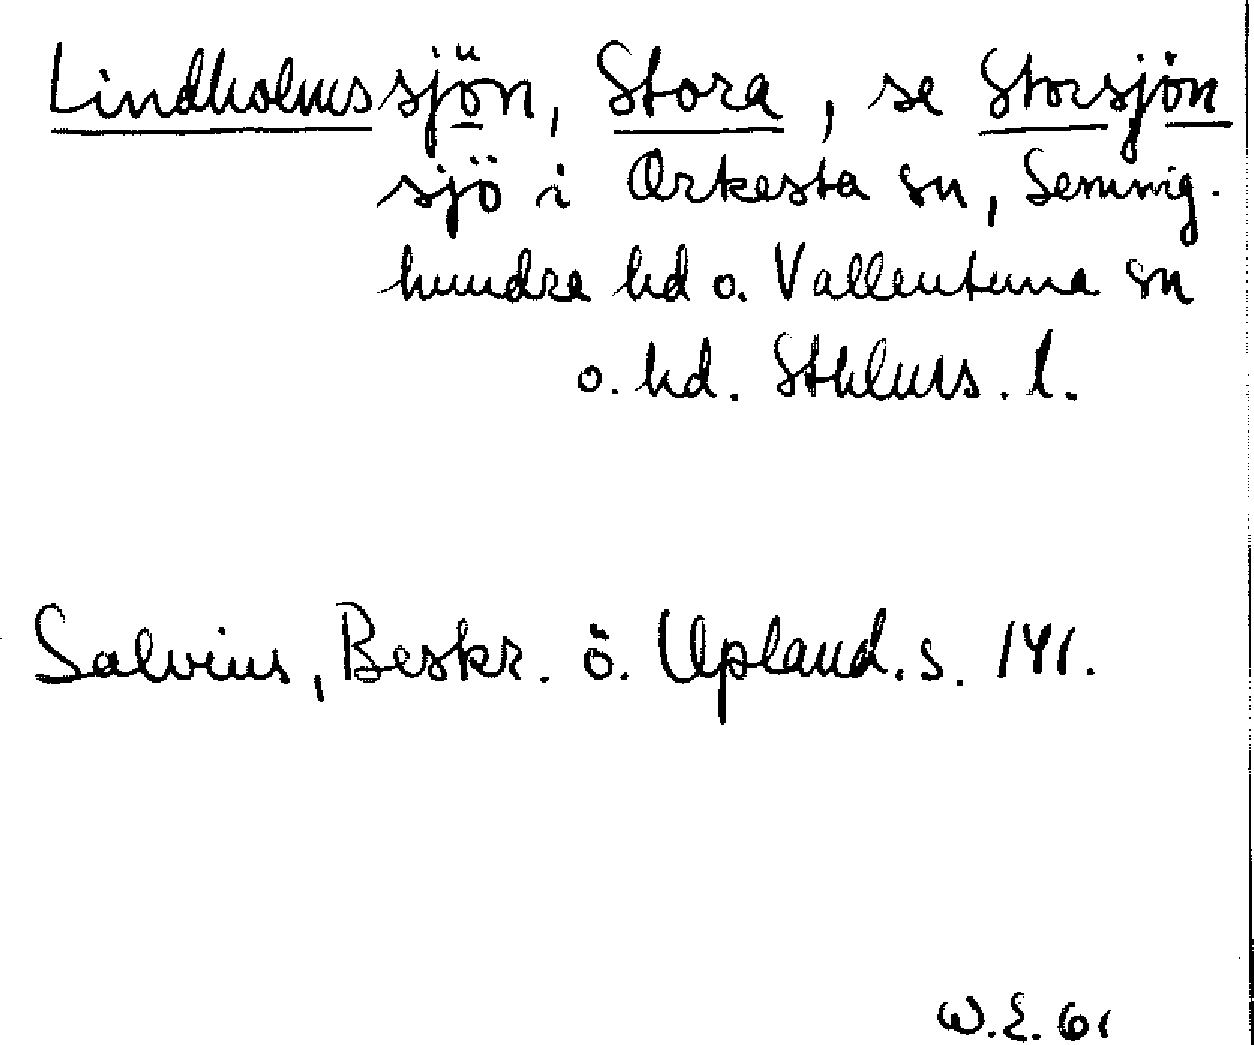 Lindholmssjön, Stora, se Storsjön
sjö i Orkesta sn, Seming-
hundra hd o. Vallentuna sn
o. hd. Sthlms. l.
Salvius, Beskr. ö. Upland. s. 141.
W.E. 61